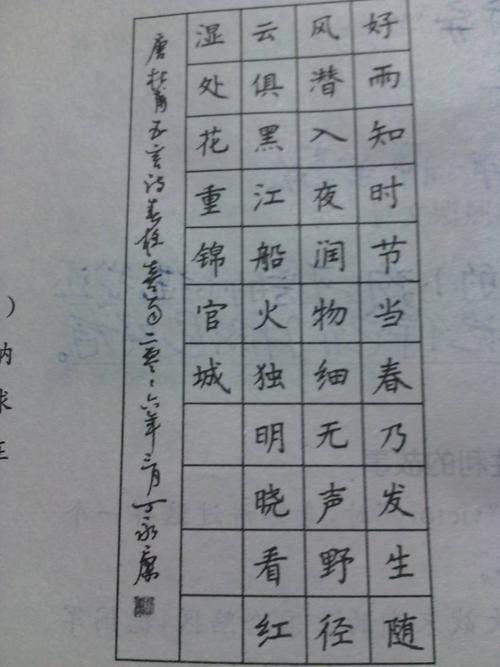 好雨知时节当春乃发生随
风潜入夜润物细无声野径
云俱黑江船火独明晓看红
湿处花重锦官城
唐杜甫五言诗春夜喜雨二零一六年三月丁永康